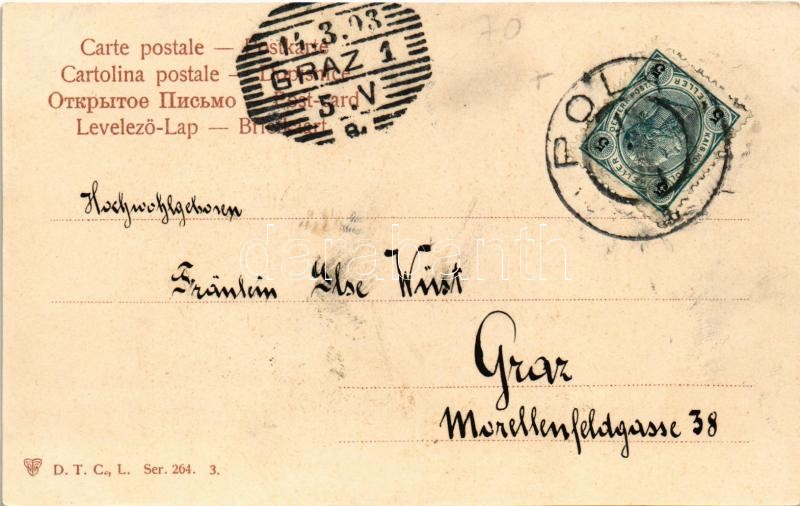 Carte postale — Postkarte
Cartolina postale — Dopisnice
Открытое Письмо — Post-card
Levelező-Lap — Briefkaart
14.3.03
GRAZ 1
5.V
a.
70
POL
5 5 5 5
HELLER HELLER
Hochwohlgeboren
Fräulein Ilse Wüst
Graz
Morellenfeldgasse 38
darabanth
D. T. C., L. Ser. 264. 3.